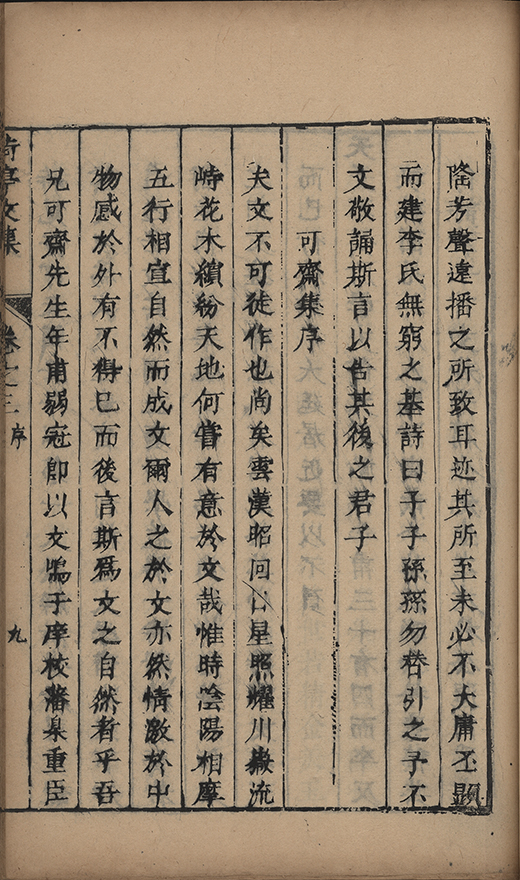 隆芳聲遠播之所致耳迹其所至未必不大庸丕顯
而建李氏無窮之基詩曰子子孫孫勿替引之予不
文敬誦斯言以告其後之君子
可齋集序
夫文不可徒作也尚矣雲漢昭回日星照耀川嶽流
峙花木繽紛天地何嘗有意於文哉惟時陰陽相摩
五行相宣自然而成文爾人之於文亦然情激於中
物感於外有不得已而後言斯爲文之自然者乎吾
兄可齋先生年甫弱冠卽以文鳴于庠校藩臬重臣
亭文集 卷之三 序 九